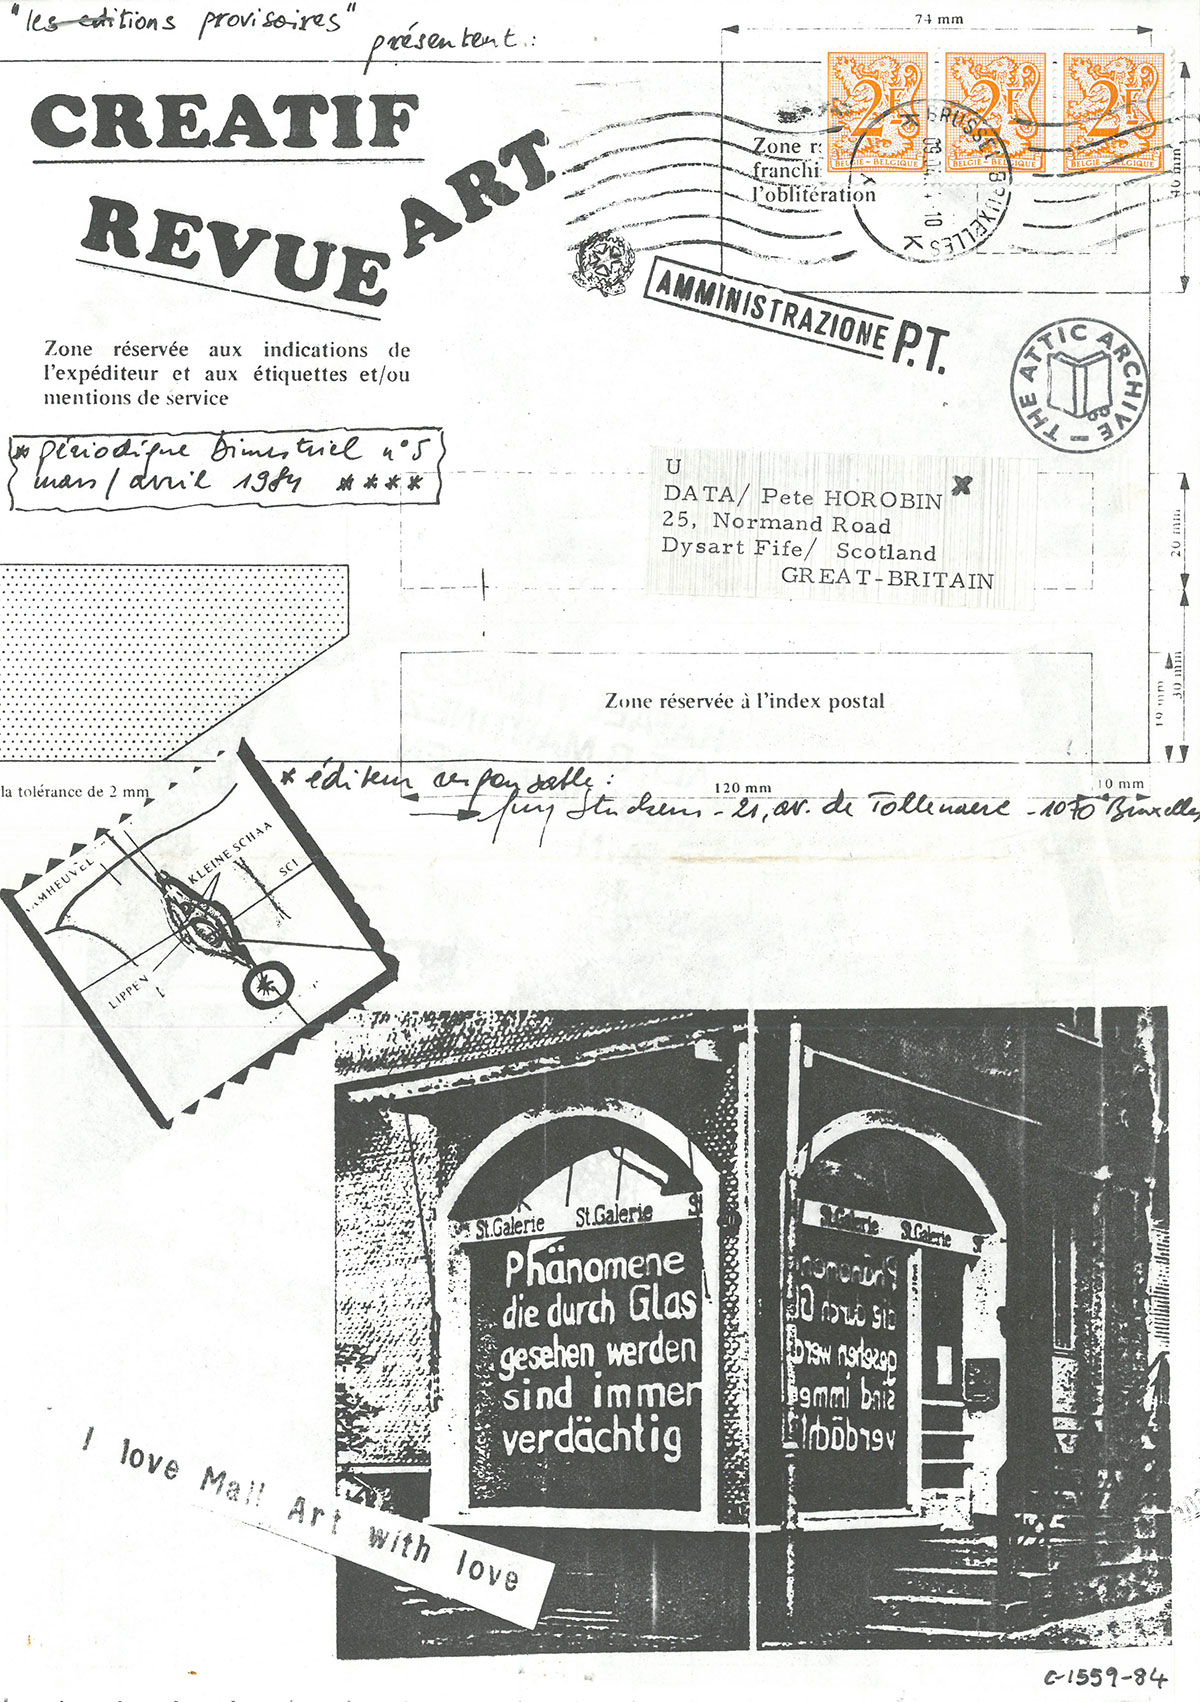 "les editions provisoires"
présentent :
74 mm
CREATIF
REVUE ART
2F 2F 2F
BELGIE - BELGIQUE BELGIE - BELGIQUE BELGIE - BELGIQUE
Zone
franchi
l'oblitération
BRUSSEL BRUXELLES
K K
10
40 mm
AMMINISTRAZIONE P.T.
THE ATTIC ARCHIVE
Zone réservée aux indications de
l'expéditeur et aux étiquettes et/ou
mentions de service
* périodique bimestriel n° 5
mars / avril 1984 * * * *
U
DATA/ Pete HOROBIN
25, Normand Road
Dysart Fife/ Scotland
GREAT-BRITAIN
20 mm
Zone réservée à l'index postal
30 mm
19 mm
la tolérance de 2 mm
* éditeur responsable :
120 mm
10 mm
Guy Stuckens - 21, av. de Tollenaere - 1070 Bruxelles
AMHEUVEL
KLEINE SCHAA
SCI
LIPPEN
St.Galerie St.Galerie St
Phänomene
die durch Glas
gesehen werden
sind immer
verdächtig
St.Galerie St.Galerie St
Phänomen
die durch G
gesehen werd
sind imme
verdächt
I love Mail Art with love
C-1559-84